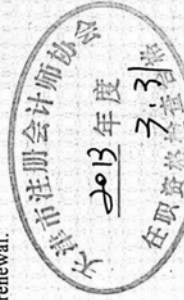 renewal.
天津市注册会计师协会
2013 年度
3.31
任职资格检查